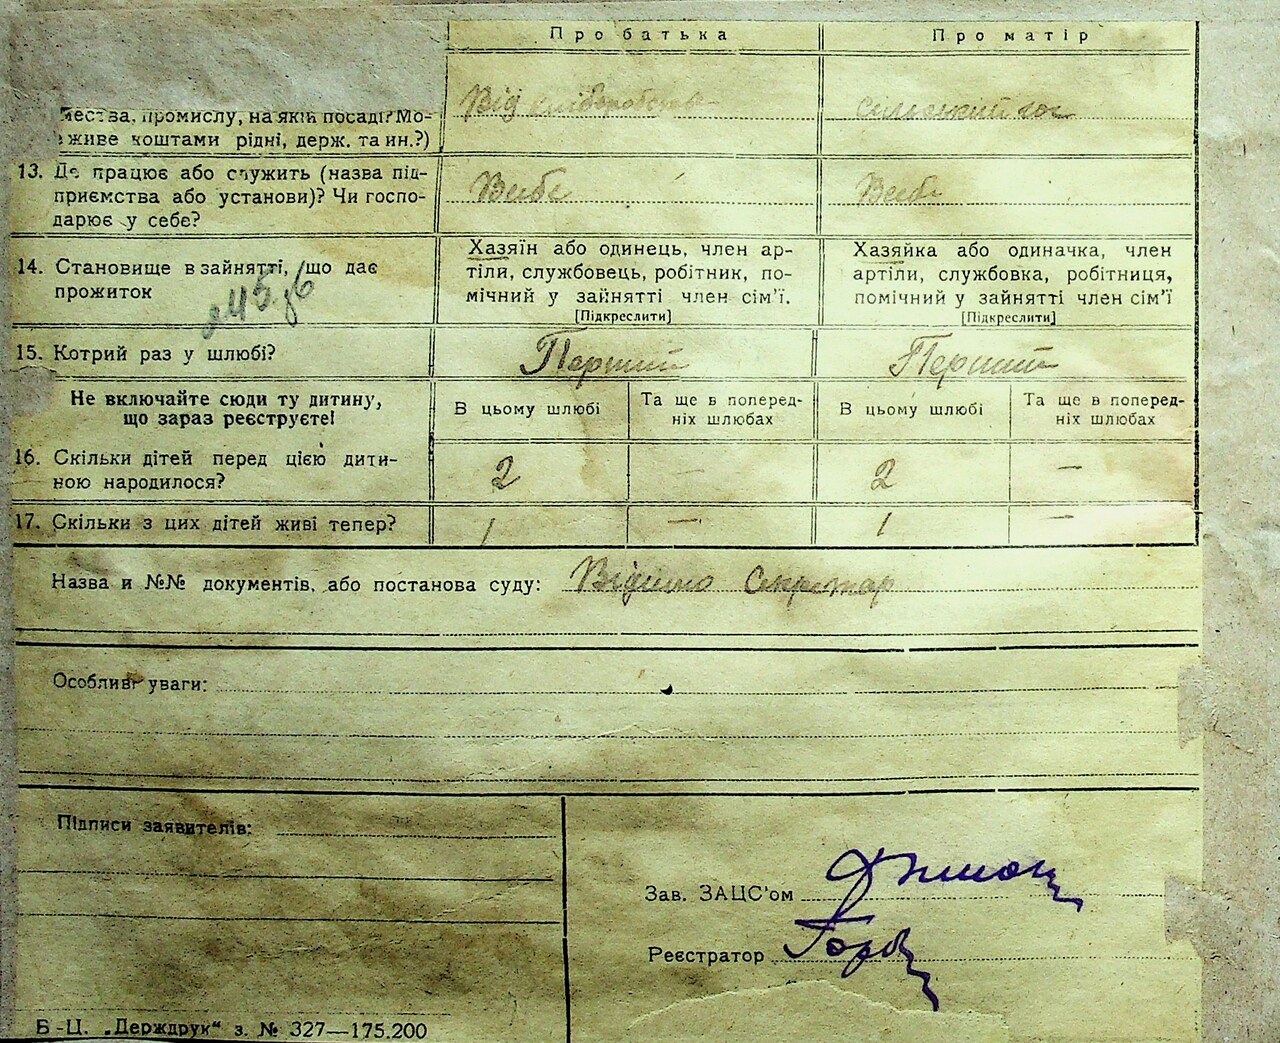 Про батька Про матір
Від хліборобства сільський гос
чества, промислу, на якій посаді? Мо-
живе коштами рідні, держ. та ин.?)
13. Де працює або служить (назва під-
приємства або установи)? Чи госпо-
дарює у себе?
В себе В себе
14. Становище в зайнятті, що дає
прожиток
Хазяїн або одинець, член ар-
тіли, службовець, робітник, по-
мічний у зайнятті член сім'ї.
[Підкреслити]
Хазяйка або одиначка, член
артіли, службовка, робітниця,
помічний у зайнятті член сім'ї
[Підкреслити]
15. Котрий раз у шлюбі? Перший Перший
Не включайте сюди ту дитину,
що зараз реєструєте!
В цьому шлюбі
Та ще в поперед-
ніх шлюбах
В цьому шлюбі
Та ще в поперед-
ніх шлюбах
16. Скільки дітей перед цією дити-
ною народилося?
2 — 2 —
17. Скільки з цих дітей живі тепер? 1 — 1 —
Назва и №№ документів, або постанова суду: Відомо Секретар
Особливі уваги:
Підписи заявителів:
Зав. ЗАЦС'ом
Реєстратор
Б-Ц. „Держдрук“ з. № 327—175.200